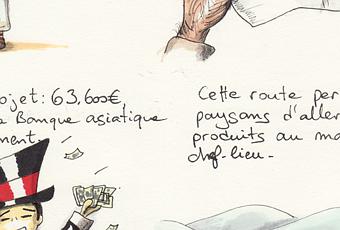 ojet: 63.600€,
a Banque asiatique
ment.
Cette route per
paysans d'aller
produits au ma
chef-lieu-